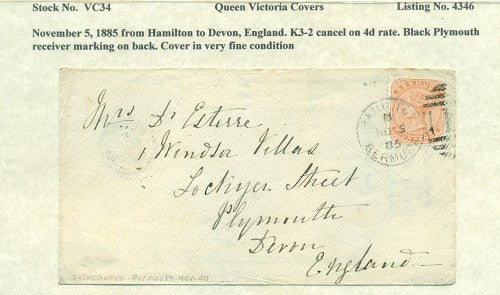 Stock No. VC34 Queen Victoria Covers Listing No. 4346
November 5, 1885 from Hamilton to Devon, England. K3-2 cancel on 4d rate. Black Plymouth
receiver marking on back. Cover in very fine condition
HAMILTON
NO 5
85
BERMUDA
1
Mrs D'Esterre
1 Windsor Villas
Lockyer Street
Plymouth
Devon
England
BACKSTAMPED PLYMOUTH NOV. 20